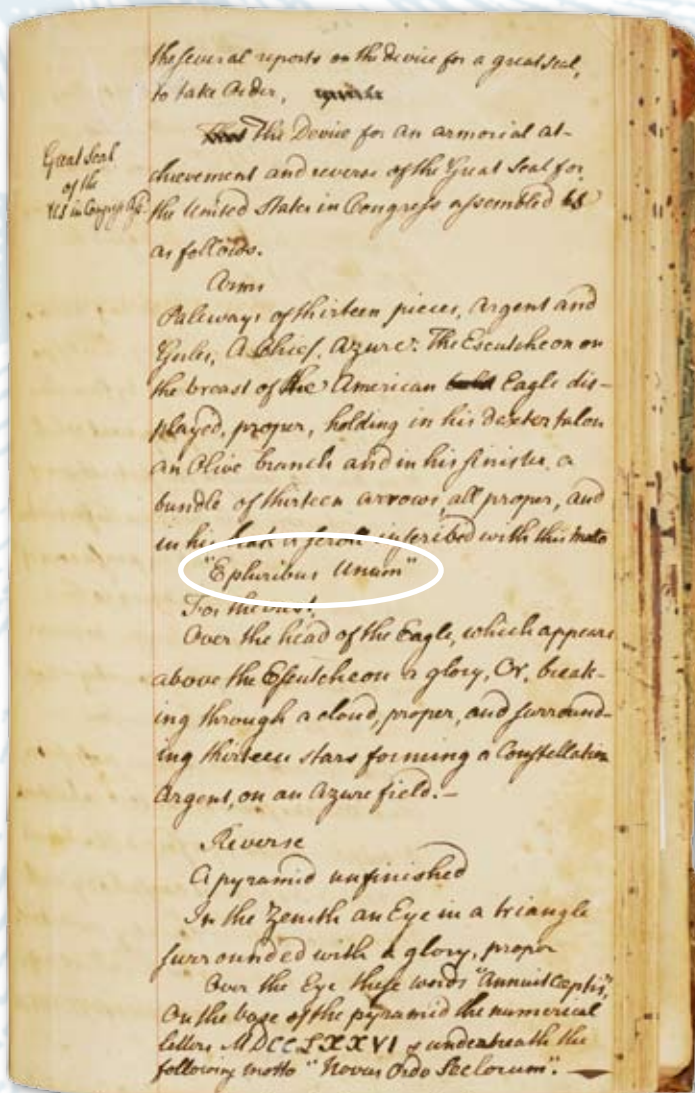 the several reports on the device for a great seal,
to take order,
That The Device for an armorial at-
Great Seal
of the
US in Congress
chievement and reverse of the Great Seal for
the United States in Congress assembled is
as follows.
Arms
Paleways of thirteen pieces, Argent and
Gules, A Chief, Azure. The Escutcheon on
the breast of the American bald Eagle dis-
played, proper, holding in his dexter talon
an Olive branch and in his sinister, a
bundle of thirteen arrows, all proper, and
in his beak a scroll inscribed with this motto
"E pluribus Unum"
For the Crest.
Over the head of the Eagle, which appears
above the Escutcheon a glory, Or, break-
ing through a cloud, proper, and surround-
ing thirteen stars forming a Constellation
Argent, on an Azure field.—
Reverse
A pyramid unfinished
In the Zenith an Eye in a triangle
surrounded with a glory, proper
Over the Eye these words "Annuit Cœptis",
On the base of the pyramid the numerical
letters MDCCLXXVI & underneath the
following motto "Novus Ordo Seclorum".—